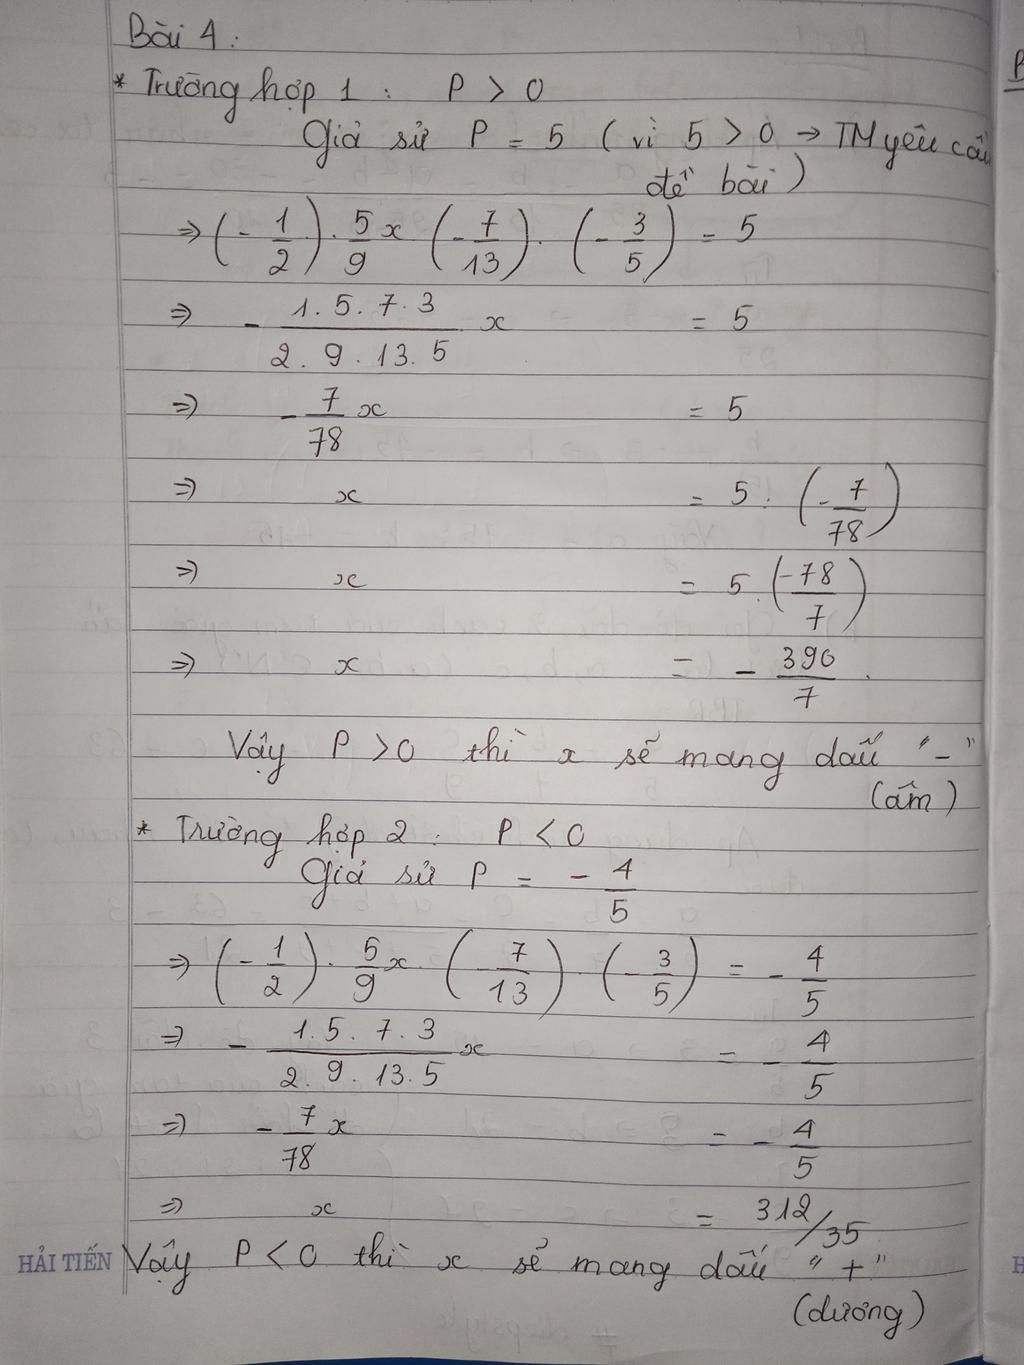 Bài 4:
* Trường hợp 1: P > 0
Giả sử P = 5 (vì 5 > 0 → TM yêu cầu
đề bài)
⇒ (-1/2) . 5/9 x (-7/13) . (-3/5) = 5
⇒ - 1.5.7.3 / 2.9.13.5 x = 5
⇒ - 7/78 x = 5
⇒ x = 5 : (-7/78)
⇒ x = 5 . (-78/7)
⇒ x = - 390/7.
Vậy P > 0 thì x sẽ mang dấu "-"
(âm)
* Trường hợp 2: P < 0
Giả sử P = - 4/5
⇒ (-1/2) . 5/9 x . (-7/13) . (-3/5) = - 4/5
⇒ - 1.5.7.3 / 2.9.13.5 x = - 4/5
⇒ - 7/78 x = - 4/5
⇒ x = 312/35
HẢI TIẾN Vậy P < 0 thì x sẽ mang dấu "+"
(dương)